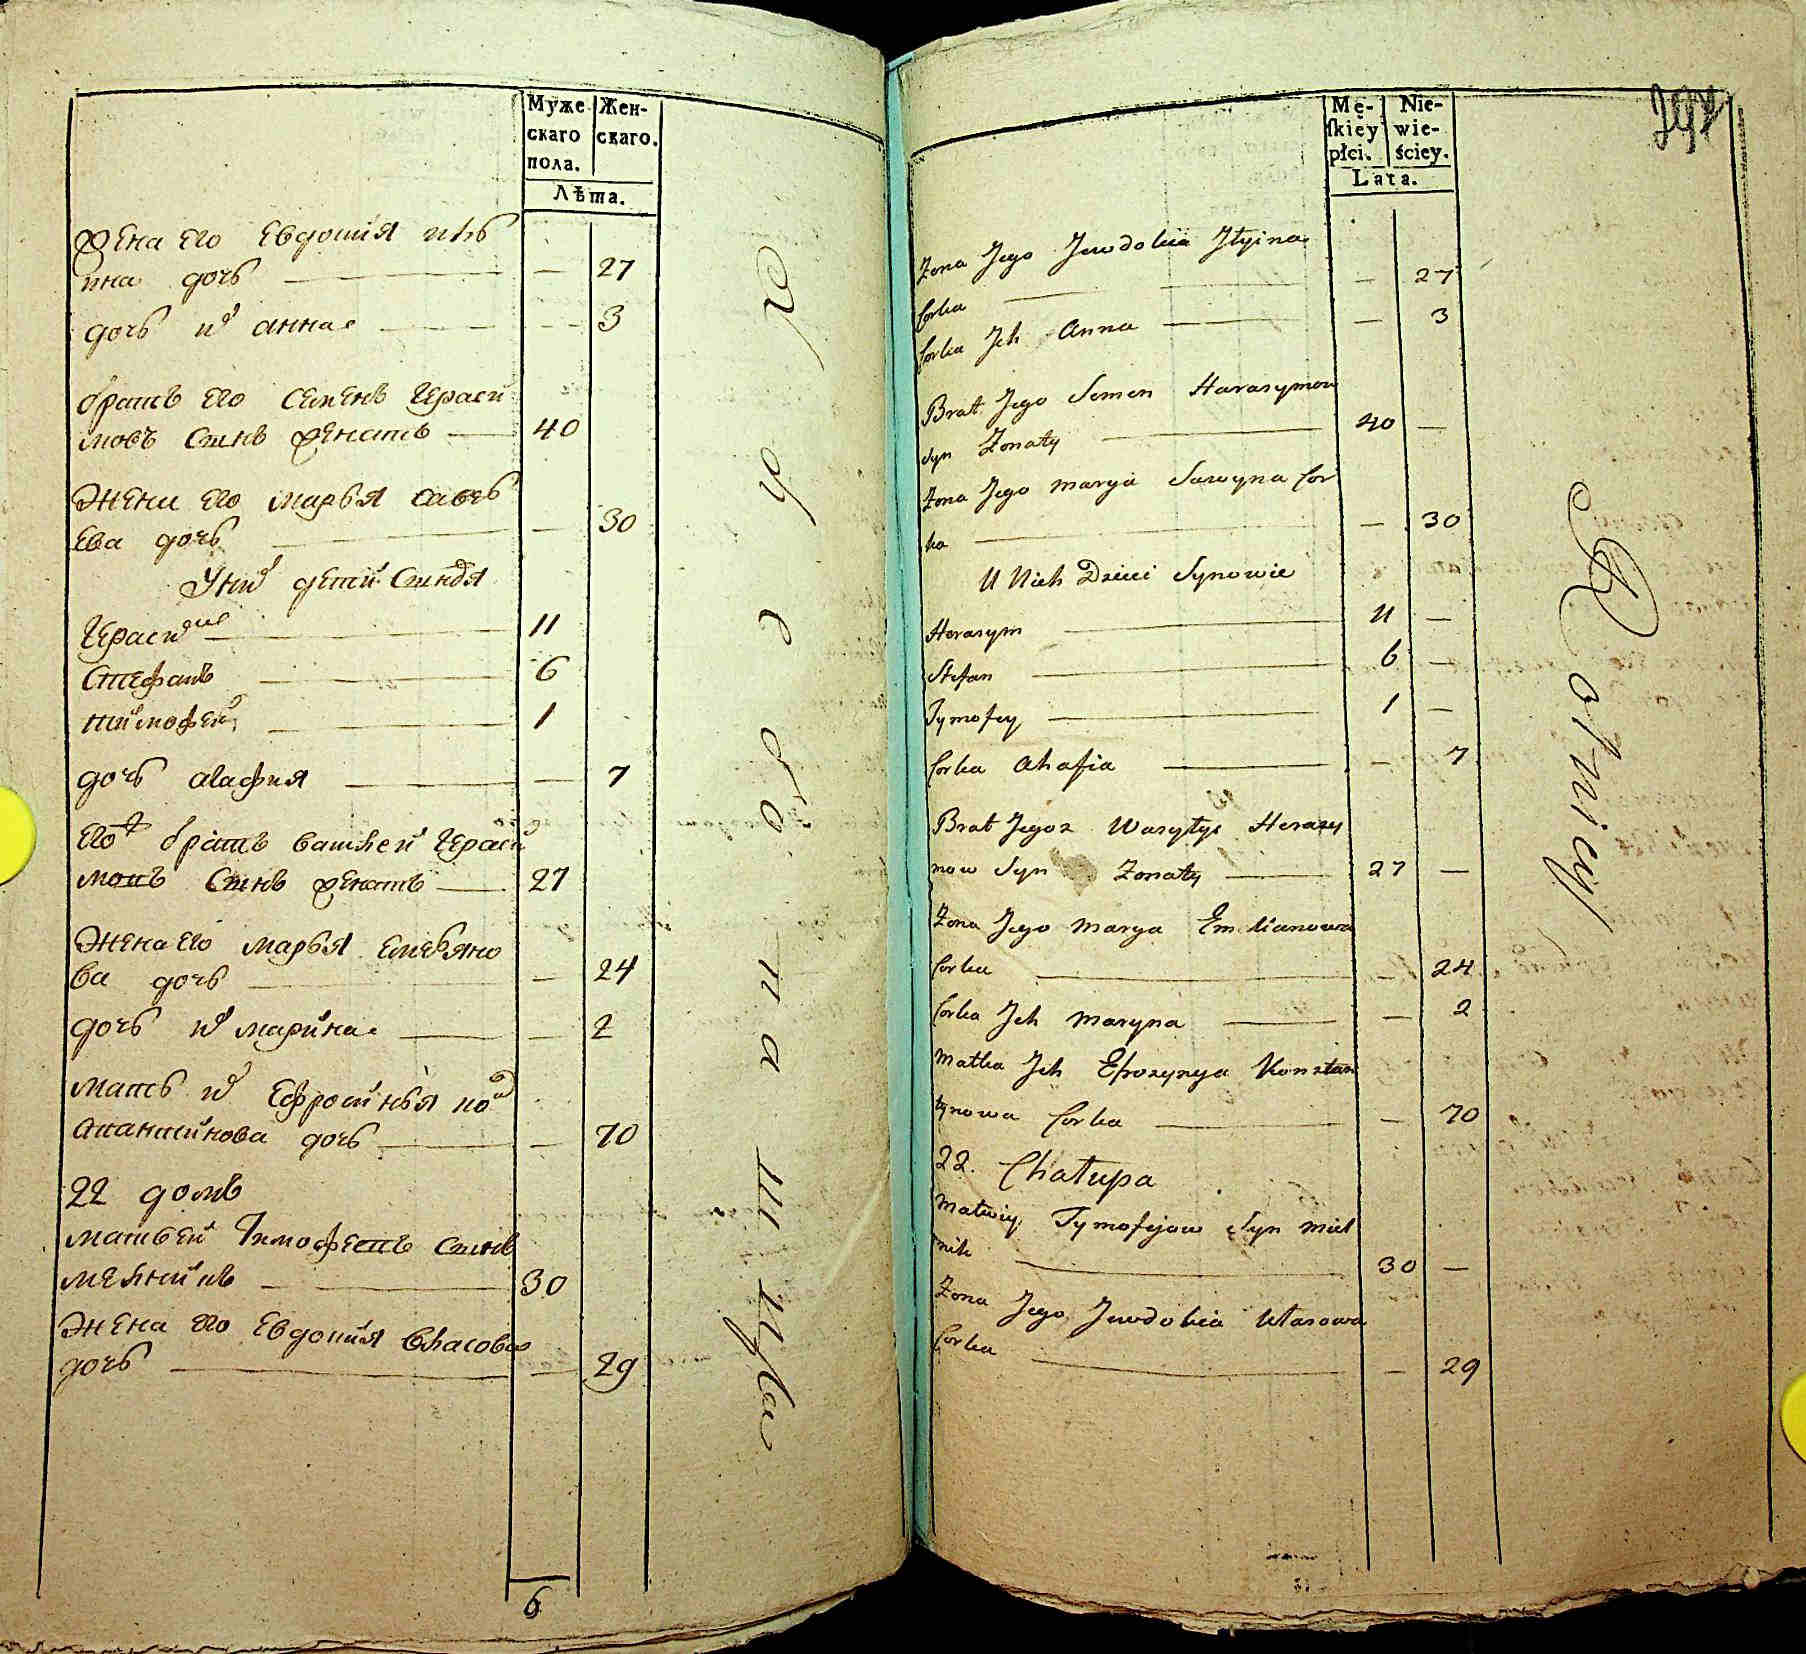 Муже Жен-
скаго скаго.
пола.
Лѣта.
жена его Евдокия Илѣ
ина дочь — 27
дочь их анна — 3
братъ его Семенъ Гераси
мовъ Сынъ женатъ — 40
жена его марья савѣ
ева дочь — 30
у них дети Сыновя
Герасим — 11
Стефанъ — 6
тимофей — 1
дочь агафия — 7
его ж братъ василей Гераси
мовъ Сынъ женатъ — 27
жена его марья Емельяно
ва дочь — 24
дочь их марина — 2
мать их Ефросинья кон
стантинова дочь — 70
22 домъ
матвей Тимофеевъ Сынъ
мелникъ — 30
жена его Евдокия Власова
дочь — 29
6
Mę- Nie-
skiey wie-
płci. ściey.
Lata.
Zona Jego Jewdokia Jlyina
Corka — 27
Corka Jch Anna — 3
Brat Jego Semen Harasymow
Syn Zonaty — 40 —
Zona Jego Marya Sawyna Cor
ka — 30
U Nich Dzieci Synowie
Harasym — 11 —
Stefan — 6 —
Tymofey — 1 —
Corka Ahafia — 7
Brat Jegoz Wasylyi Harasy
mow Syn Zonaty — 27 —
Zona Jego Marya Emilianowa
Corka — 24
Corka Jch Maryna — 2
Matka Jch Efrozynya Konstan
tynowa Corka — 70
22. Chałupa
Matwiy Tymofejow Syn Miel
nik — 30 —
Zona Jego Jewdokia Własowa
Corka — 29
Rolniey